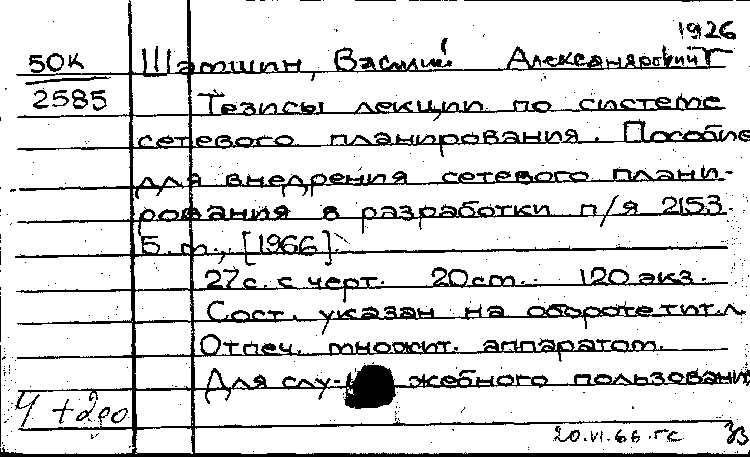 1926
50К Шатшин, Василий Александрович
2585 Тезисы лекции по системе
сетевого планирования. Пособие
для внедрения сетевого плани-
рования в разработки п/я 2153.
Б. м., [1966]
27с. с черт. 20см. 120 экз.
Сост. указан на обороте тит.л
Отпеч. множит. аппаратом.
Для слу- жебного пользовани
20.VI.66.гс